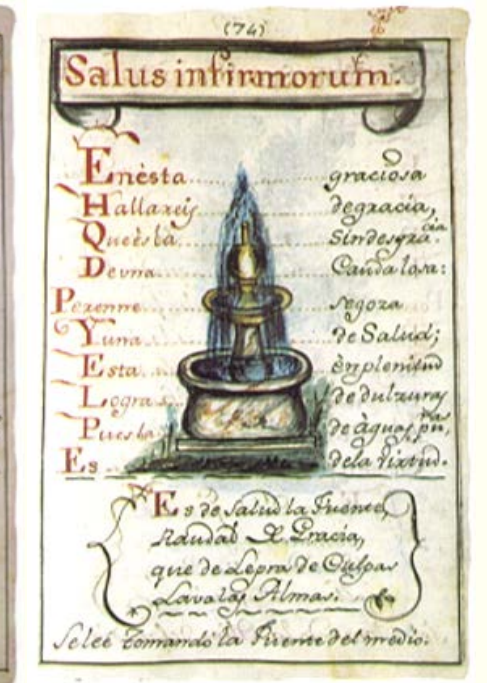 (74)
Salus infirmorum.
Enèsta graciosa
Hallareis degracia,
Queèsla Sindesgracia.
Deuna Caudalosa:
Perenne segoza
Yuna de Salud;
Esta ènplenitud
Logra de dulzuras
Puesla de àguas puras,
Es dela Virtud.
Es de salud la Fuente,
Raudal de Gracia,
que de Lepra de Culpas
Lava las Almas.
Seleè Tomando la Fuente del medio.